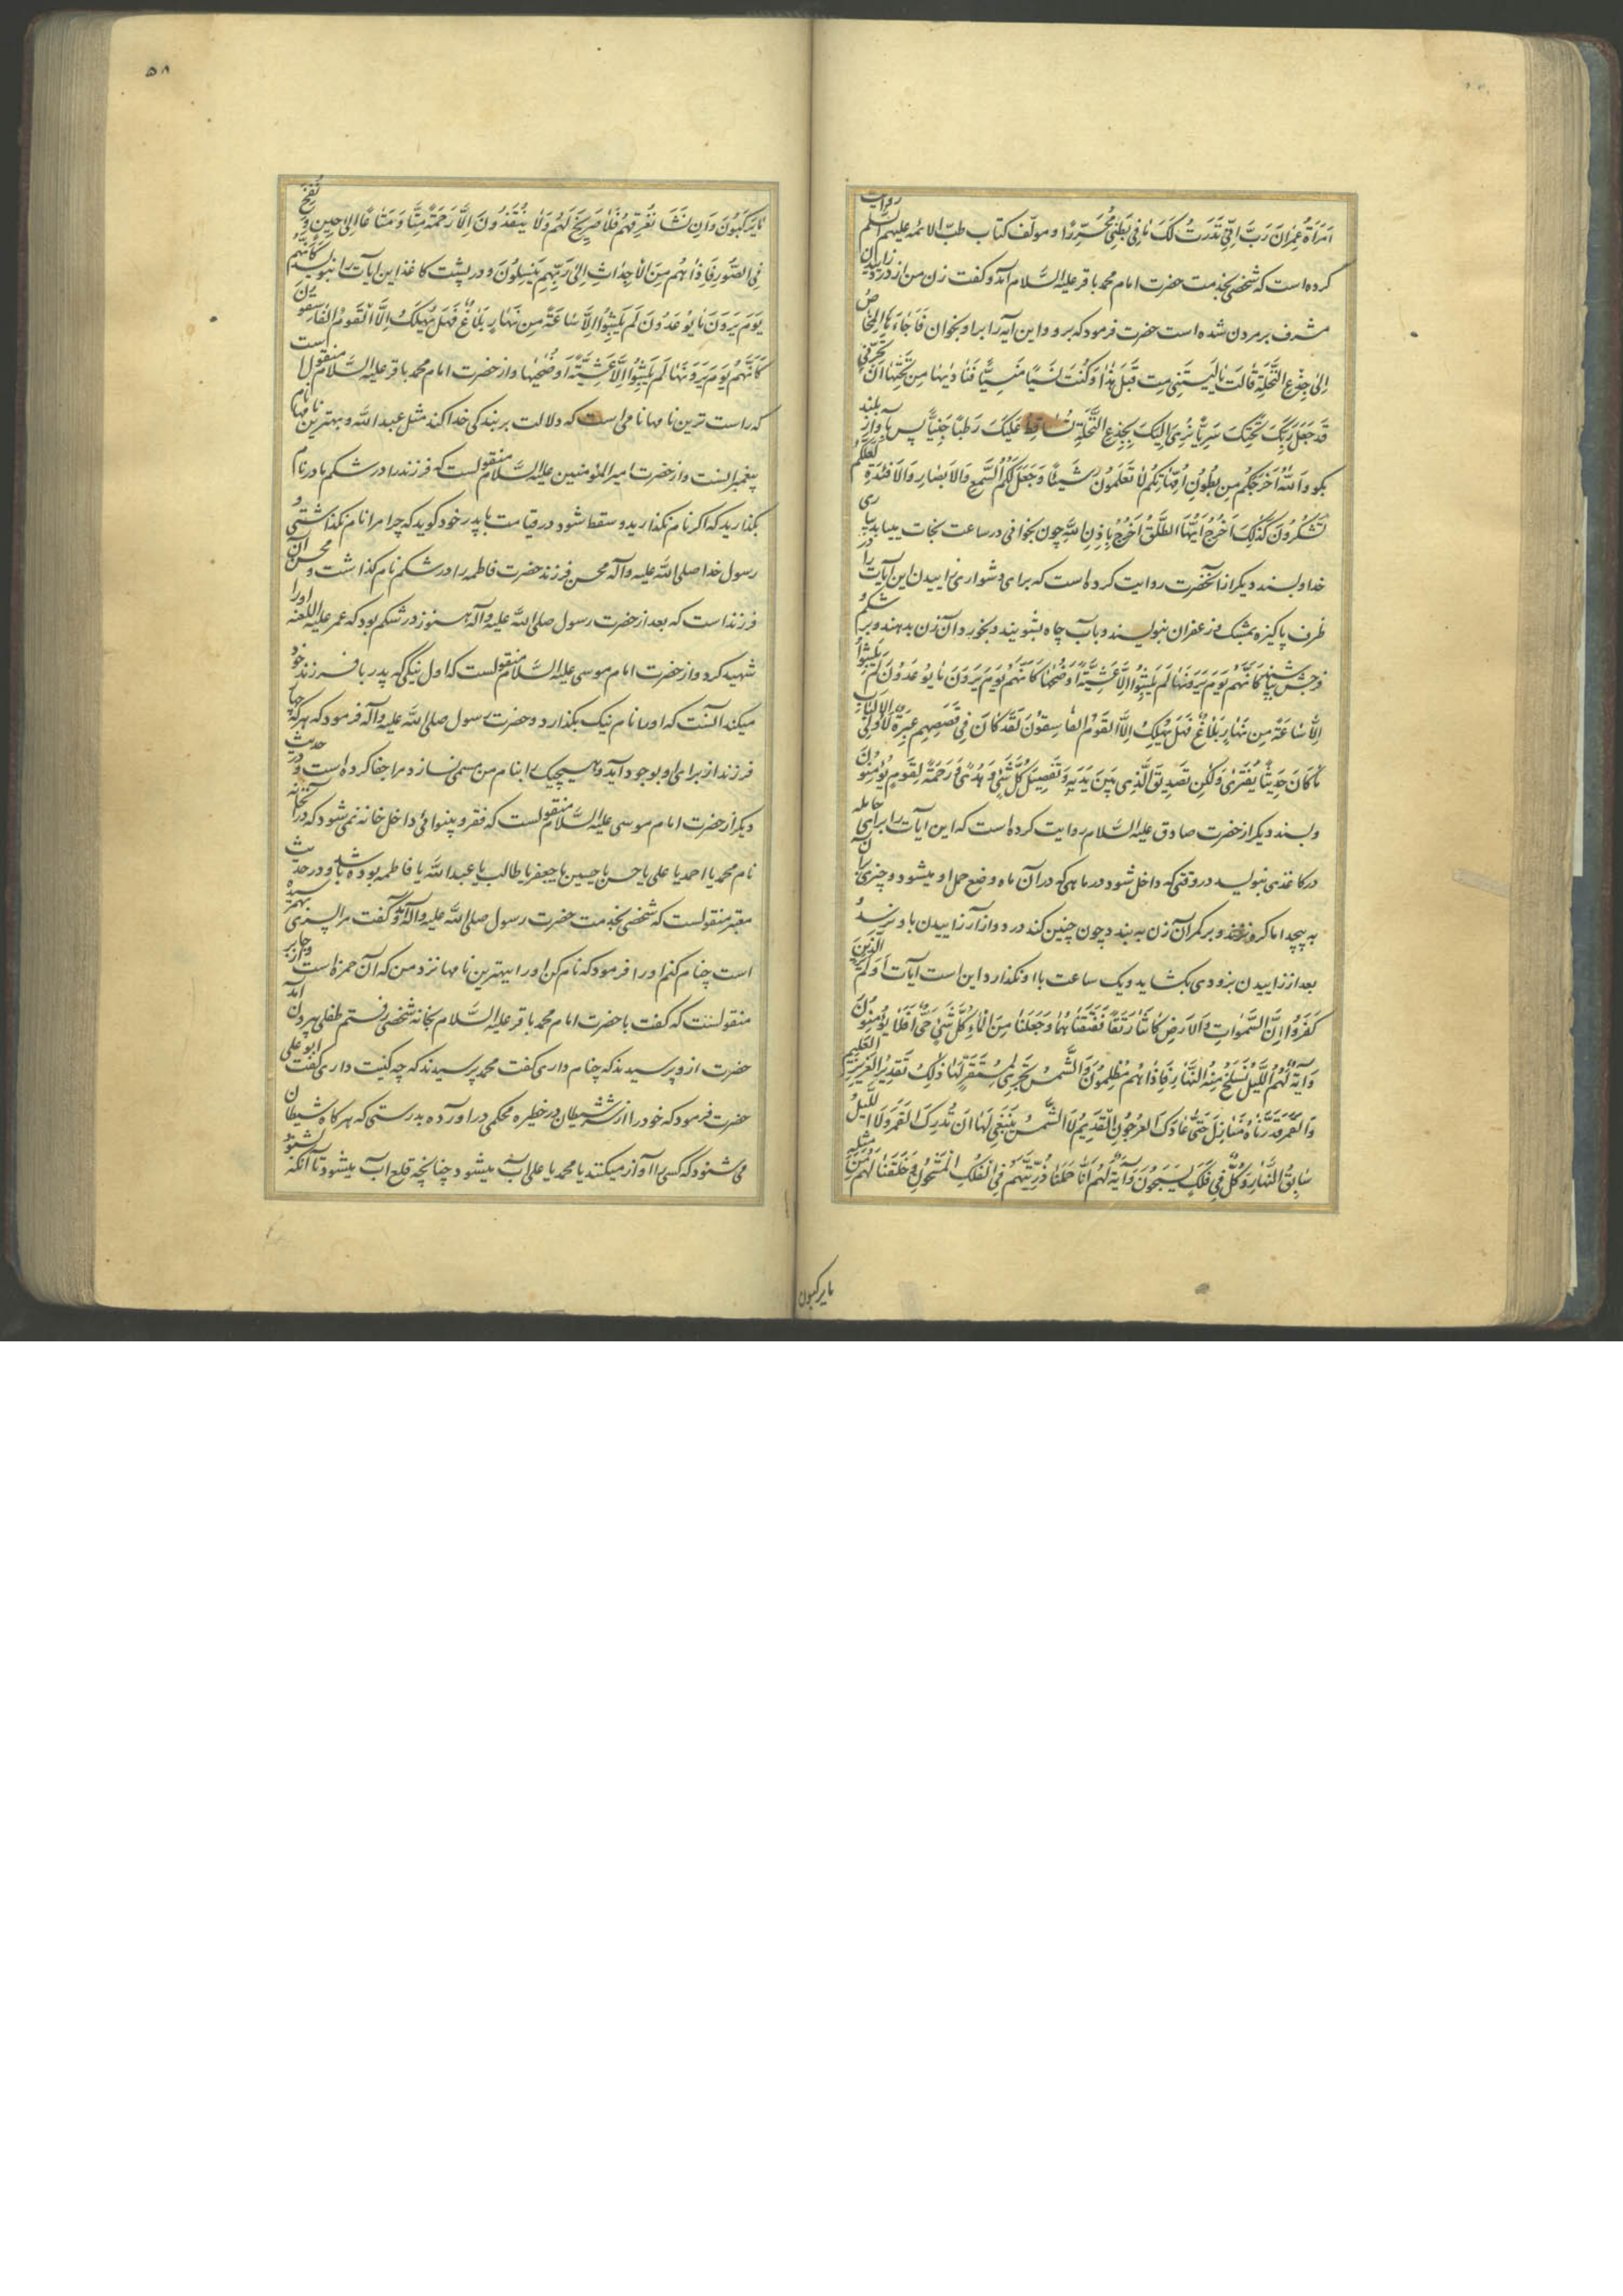 امْرَأَةُ عِمْرَانَ رَبِّ اِنّی نَذَرْتُ لَکَ مٰا فی بَطْنی مُحَرَّرًا و مولّف کتاب طبّ الائمه علیهم السلم روایت
کرده است که شخصی بخدمت حضرت امام محمد باقر علیه السّلام آمد و گفت زن من از درد زاییدن
مشرف بر مردن شده است حضرت فرمود که برو و این آیه را بر او بخوان فَاَجٰاءَهَا الْمَخٰاضُ
اِلیٰ جِذْعِ النَّخْلَةِ قٰالَتْ یٰا لَیْتَنی مِتُّ قَبْلَ هٰذٰا وَ کُنْتُ نَسْیًا مَنْسِیًّا فَنٰادٰیهٰا مِنْ تَحْتِهٰا اَنْ لا تَحْزَنی
قَدْ جَعَلَ رَبُّکِ تَحْتَکِ سَرِیًّا وَ هُزّی اِلَیْکِ بِجِذْعِ النَّخْلَةِ تُسٰاقِطْ عَلَیْکِ رُطَبًا جَنِیًّا پس بآواز بلند
بکو وَ اللّٰهُ اَخْرَجَکُمْ مِنْ بُطُونِ اُمَّهٰاتِکُمْ لٰا تَعْلَمُونَ شَیْئًا وَ جَعَلَ لَکُمُ السَّمْعَ وَ الْاَبْصٰارَ وَ الْاَفْئِدَةَ لَعَلَّکُمْ
تَشْکُرُونَ کَذٰلِکَ اُخْرُجْ اَیُّهَا الطَّلْقُ اُخْرُجْ بِاِذْنِ اللّٰهِ چون بخوانی در ساعت نجات بیابد بیاری
خدا و بسند دیکر از آنحضرت روایت کرده است که برای دشواری زاییدن این آیات را در
ظرف پاکیزه بمشک و زعفران بنویسند و بآب چاه بشویند و بخورد آن زن بدهند و بر شکم و
فرجش بپاشند کَاَنَّهُمْ یَوْمَ یَرَوْنَهٰا لَمْ یَلْبَثُوا اِلّٰا عَشِیَّةً اَوْ ضُحٰیهٰا کَاَنَّهُمْ یَوْمَ یَرَوْنَ مٰا یُوعَدُونَ لَمْ یَلْبَثُوا
اِلّٰا سٰاعَةً مِنْ نَهٰارٍ بَلٰاغٌ فَهَلْ یُهْلَکُ اِلَّا الْقَوْمُ الْفٰاسِقُونَ لَقَدْ کٰانَ فی قَصَصِهِمْ عِبْرَةٌ لِاُولِی الْاَلْبٰابِ
مٰا کٰانَ حَدیثًا یُفْتَریٰ وَ لٰکِنْ تَصْدیقَ الَّذی بَیْنَ یَدَیْهِ وَ تَفْصیلَ کُلِّ شَیْءٍ وَ هُدًی وَ رَحْمَةً لِقَوْمٍ یُؤْمِنُونَ
و بسند دیکر از حضرت صادق علیه السّلام روایت کرده است که این آیات را برای حامله
در کاغذی بنویسد در وقتی که داخل شود در ماهی که در آن ماه وضع حمل او میشود و چیزی برآن
نه پیچد اما کرو نزنند و بر کمر آن زن به بندد چون چنین کند در دو آزار زاییدن باو نرسد و
بعد از زاییدن بزودی بکشاید و یک ساعت با او نکذارد این است آیات اَوَلَمْ یَرَ الَّذینَ
کَفَرُوا اِنَّ السَّمٰوٰاتِ وَ الْاَرْضَ کٰانَتٰا رَتْقًا فَفَتَقْنٰاهُمٰا وَ جَعَلْنٰا مِنَ الْمٰاءِ کُلَّ شَیْءٍ حَیٍّ اَفَلٰا یُؤْمِنُونَ
وَ آیَةٌ لَهُمُ اللَّیْلُ نَسْلَخُ مِنْهُ النَّهٰارَ فَاِذٰا هُمْ مُظْلِمُونَ وَ الشَّمْسُ تَجْری لِمُسْتَقَرٍّ لَهٰا ذٰلِکَ تَقْدیرُ الْعَزیزِ الْعَلیمِ
وَ الْقَمَرَ قَدَّرْنٰاهُ مَنٰازِلَ حَتّیٰ عٰادَ کَالْعُرْجُونِ الْقَدیمِ لَا الشَّمْسُ یَنْبَغی لَهٰا اَنْ تُدْرِکَ الْقَمَرَ وَلَا اللَّیْلُ
سٰابِقُ النَّهٰارِ وَ کُلٌّ فی فَلَکٍ یَسْبَحُونَ وَ آیَةٌ لَهُمْ اَنّٰا حَمَلْنٰا ذُرِّیَّتَهُمْ فِی الْفُلْکِ الْمَشْحُونِ وَ خَلَقْنٰا لَهُمْ مِنْ مِثْلِهِ
مایرکبون
۵۸
مٰا یَرْکَبُونَ وَ اِنْ نَشَأْ نُغْرِقْهُمْ فَلٰا صَریخَ لَهُمْ وَ لٰا یُنْقَذُونَ اِلّٰا رَحْمَةً مِنّٰا وَ مَتٰاعًا اِلیٰ حینٍ وَ نُفِخَ
فِی الصُّورِ فَاِذٰا هُمْ مِنَ الْاَجْدٰاثِ اِلیٰ رَبِّهِمْ یَنْسِلُونَ و در پشت کاغذ این آیات را بنویسد کَاَنَّهُمْ
یَوْمَ یَرَوْنَ مٰا یُوعَدُونَ لَمْ یَلْبَثُوا اِلّٰا سٰاعَةً مِنْ نَهٰارٍ بَلٰاغٌ فَهَلْ یُهْلَکُ اِلَّا الْقَوْمُ الْفٰاسِقُونَ
کَاَنَّهُمْ یَوْمَ یَرَوْنَهٰا لَمْ یَلْبَثُوا اِلّٰا عَشِیَّةً اَوْ ضُحٰیهٰا و از حضرت امام محمد باقر علیه السّلام منقول است
که راست ترین نامها نامی است که دلالت بر بندکی خدا کند مثل عبد الله و بهترین نامها نام
پیغمبرانست و از حضرت امیر المؤمنین علیه السّلام منقولست که فرزند را در شکم مادر نام
بکذارید که اکر نام نکذارید و سقط شود در قیامت با پدر خود کوید که چرا مرا نام نکذاشتی و
رسول خدا صلی الله علیه وآله محسن فرزند حضرت فاطمه را در شکم نام کذاشت و محسن آن
فرزنداست که بعد از حضرت رسول صلی الله علیه وآله هنوز در شکم بود که عمر علیه اللعنه او را
شهید کرد و از حضرت امام موسی علیه السّلام منقولست که اول نیکی که پدر با فرزند خود
میکند آنست که او را نام نیک بکذارد و حضرت رسول صلی الله علیه وآله فرمود که هر که چهار
فرزند از برای او بوجود آید و هیچیک را بنام من مسمی نسازد مرا جفا کرده است و در حدیث
دیکر از حضرت امام موسی علیه السّلام منقولست که فقر و بینوائی داخل خانه نمی شود که در آنخانه
نام محمد یا احمد یا علی یا حسن یا حسین یا جعفر یا طالب یا عبد الله یا فاطمه بوده باشد و در حدیث
معتبر منقولست که شخصی بخدمت حضرت رسول صلی الله علیه وآله آمد و گفت مرا پسری بهم رسیده
است چنام کنم او را فرمود که نام کن او را بهترین نامها نزد من که آن حمزه است و از جابر
منقولست که گفت با حضرت امام محمد باقر علیه السّلام بخانه شخصی رفتم طفلی بیرون آمد
حضرت از و پرسید که چنام داری گفت محمد پرسید که چه کنیت داری گفت ابو علی
حضرت فرمود که خود را از شرّ شیطان در حظیره محکمی در اورده بدرستی که هر کاه شیطان
می شنود که کسی را آواز میکنند یا محمد یا علی آب میشود چنانچه قلع آب میشود تا آنکه بشنود